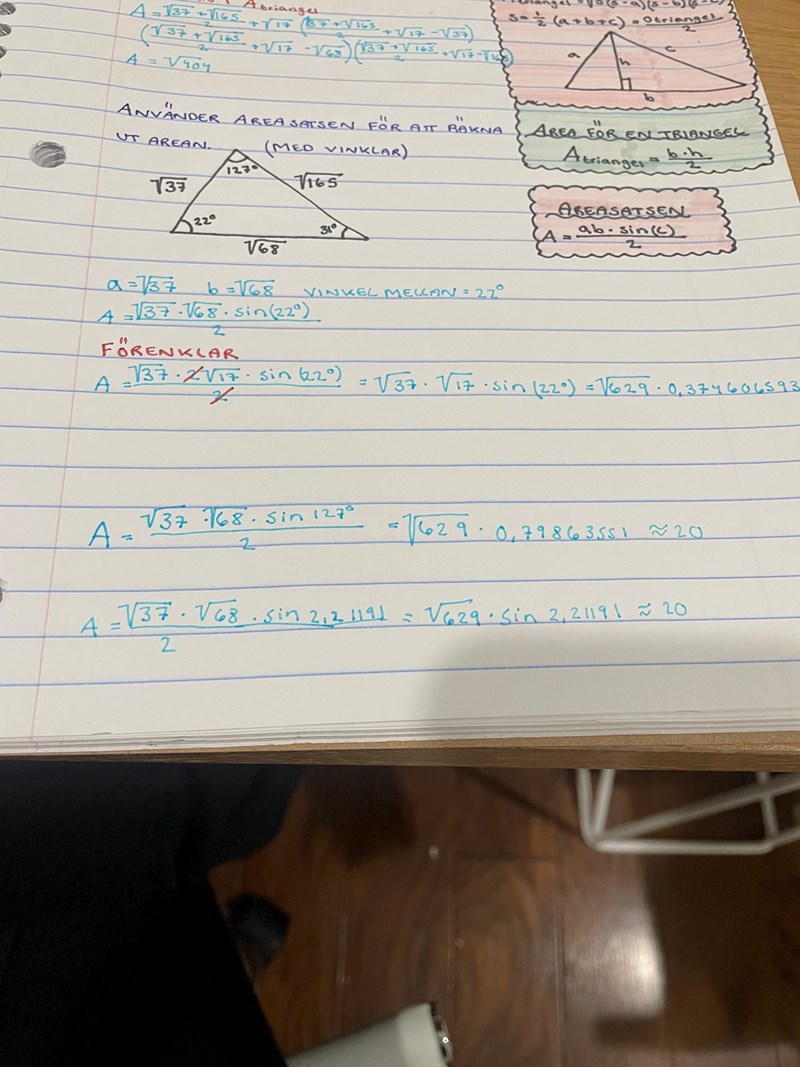 Atriangel
A = √37 + √165 / 2 + √17 (√37 + √165 / 2 + √17 - √37)
(√37 + √165 / 2 + √17 - √68)(√37 + √165 / 2 + √17 - √165)
A = √404
S = 1/2 (a+b+c) = Otriangel / 2
a
h
c
b
ANVÄNDER AREASATSEN FÖR ATT RÄKNA
UT AREAN. (MED VINKLAR)
AREA FÖR EN TRIANGEL
Atriangel = b·h / 2
127°
√37
√165
22°
31°
√68
AREASATSEN
A = ab · sin(c) / 2
a = √37 b = √68 VINKEL MELLAN = 22°
A = √37 · √68 · sin(22°) / 2
FÖRENKLAR
A = √37 · 2√17 · sin(22°) / 2 = √37 · √17 · sin(22°) = √629 · 0,374606593
A = √37 · √68 · sin 127° / 2 = √629 · 0,79863551 ≈ 20
A = √37 · √68 · sin 2,21191 / 2 = √629 · sin 2,21191 ≈ 20